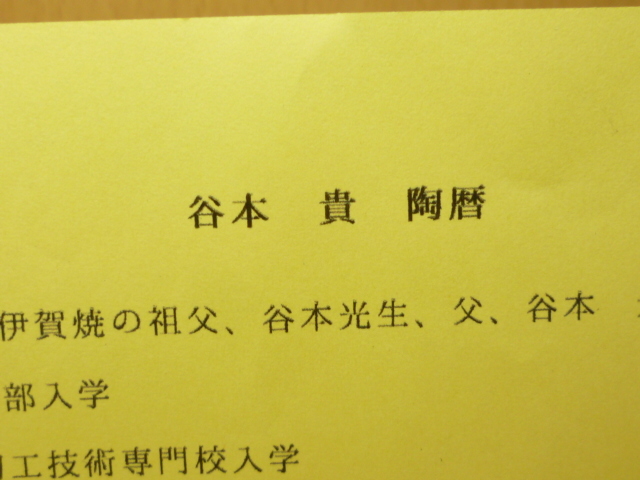 谷本 貴 陶暦
伊賀焼の祖父、谷本光生、父、谷本
部入学
工技術専門校入学